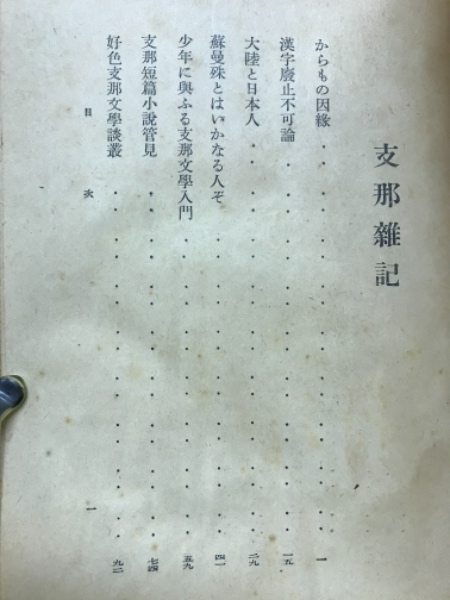 支那雜記
からもの因緣・・・・・・・・・・一
漢字廢止不可論・・・・・・・・・・一五
大陸と日本人・・・・・・・・・・二九
蘇曼殊とはいかなる人ぞ・・・・・・・・四一
少年に與ふる支那文學入門・・・・・・・・五九
支那短篇小說管見・・・・・・・・・七四
好色支那文學談叢・・・・・・・・・九二
目次
一